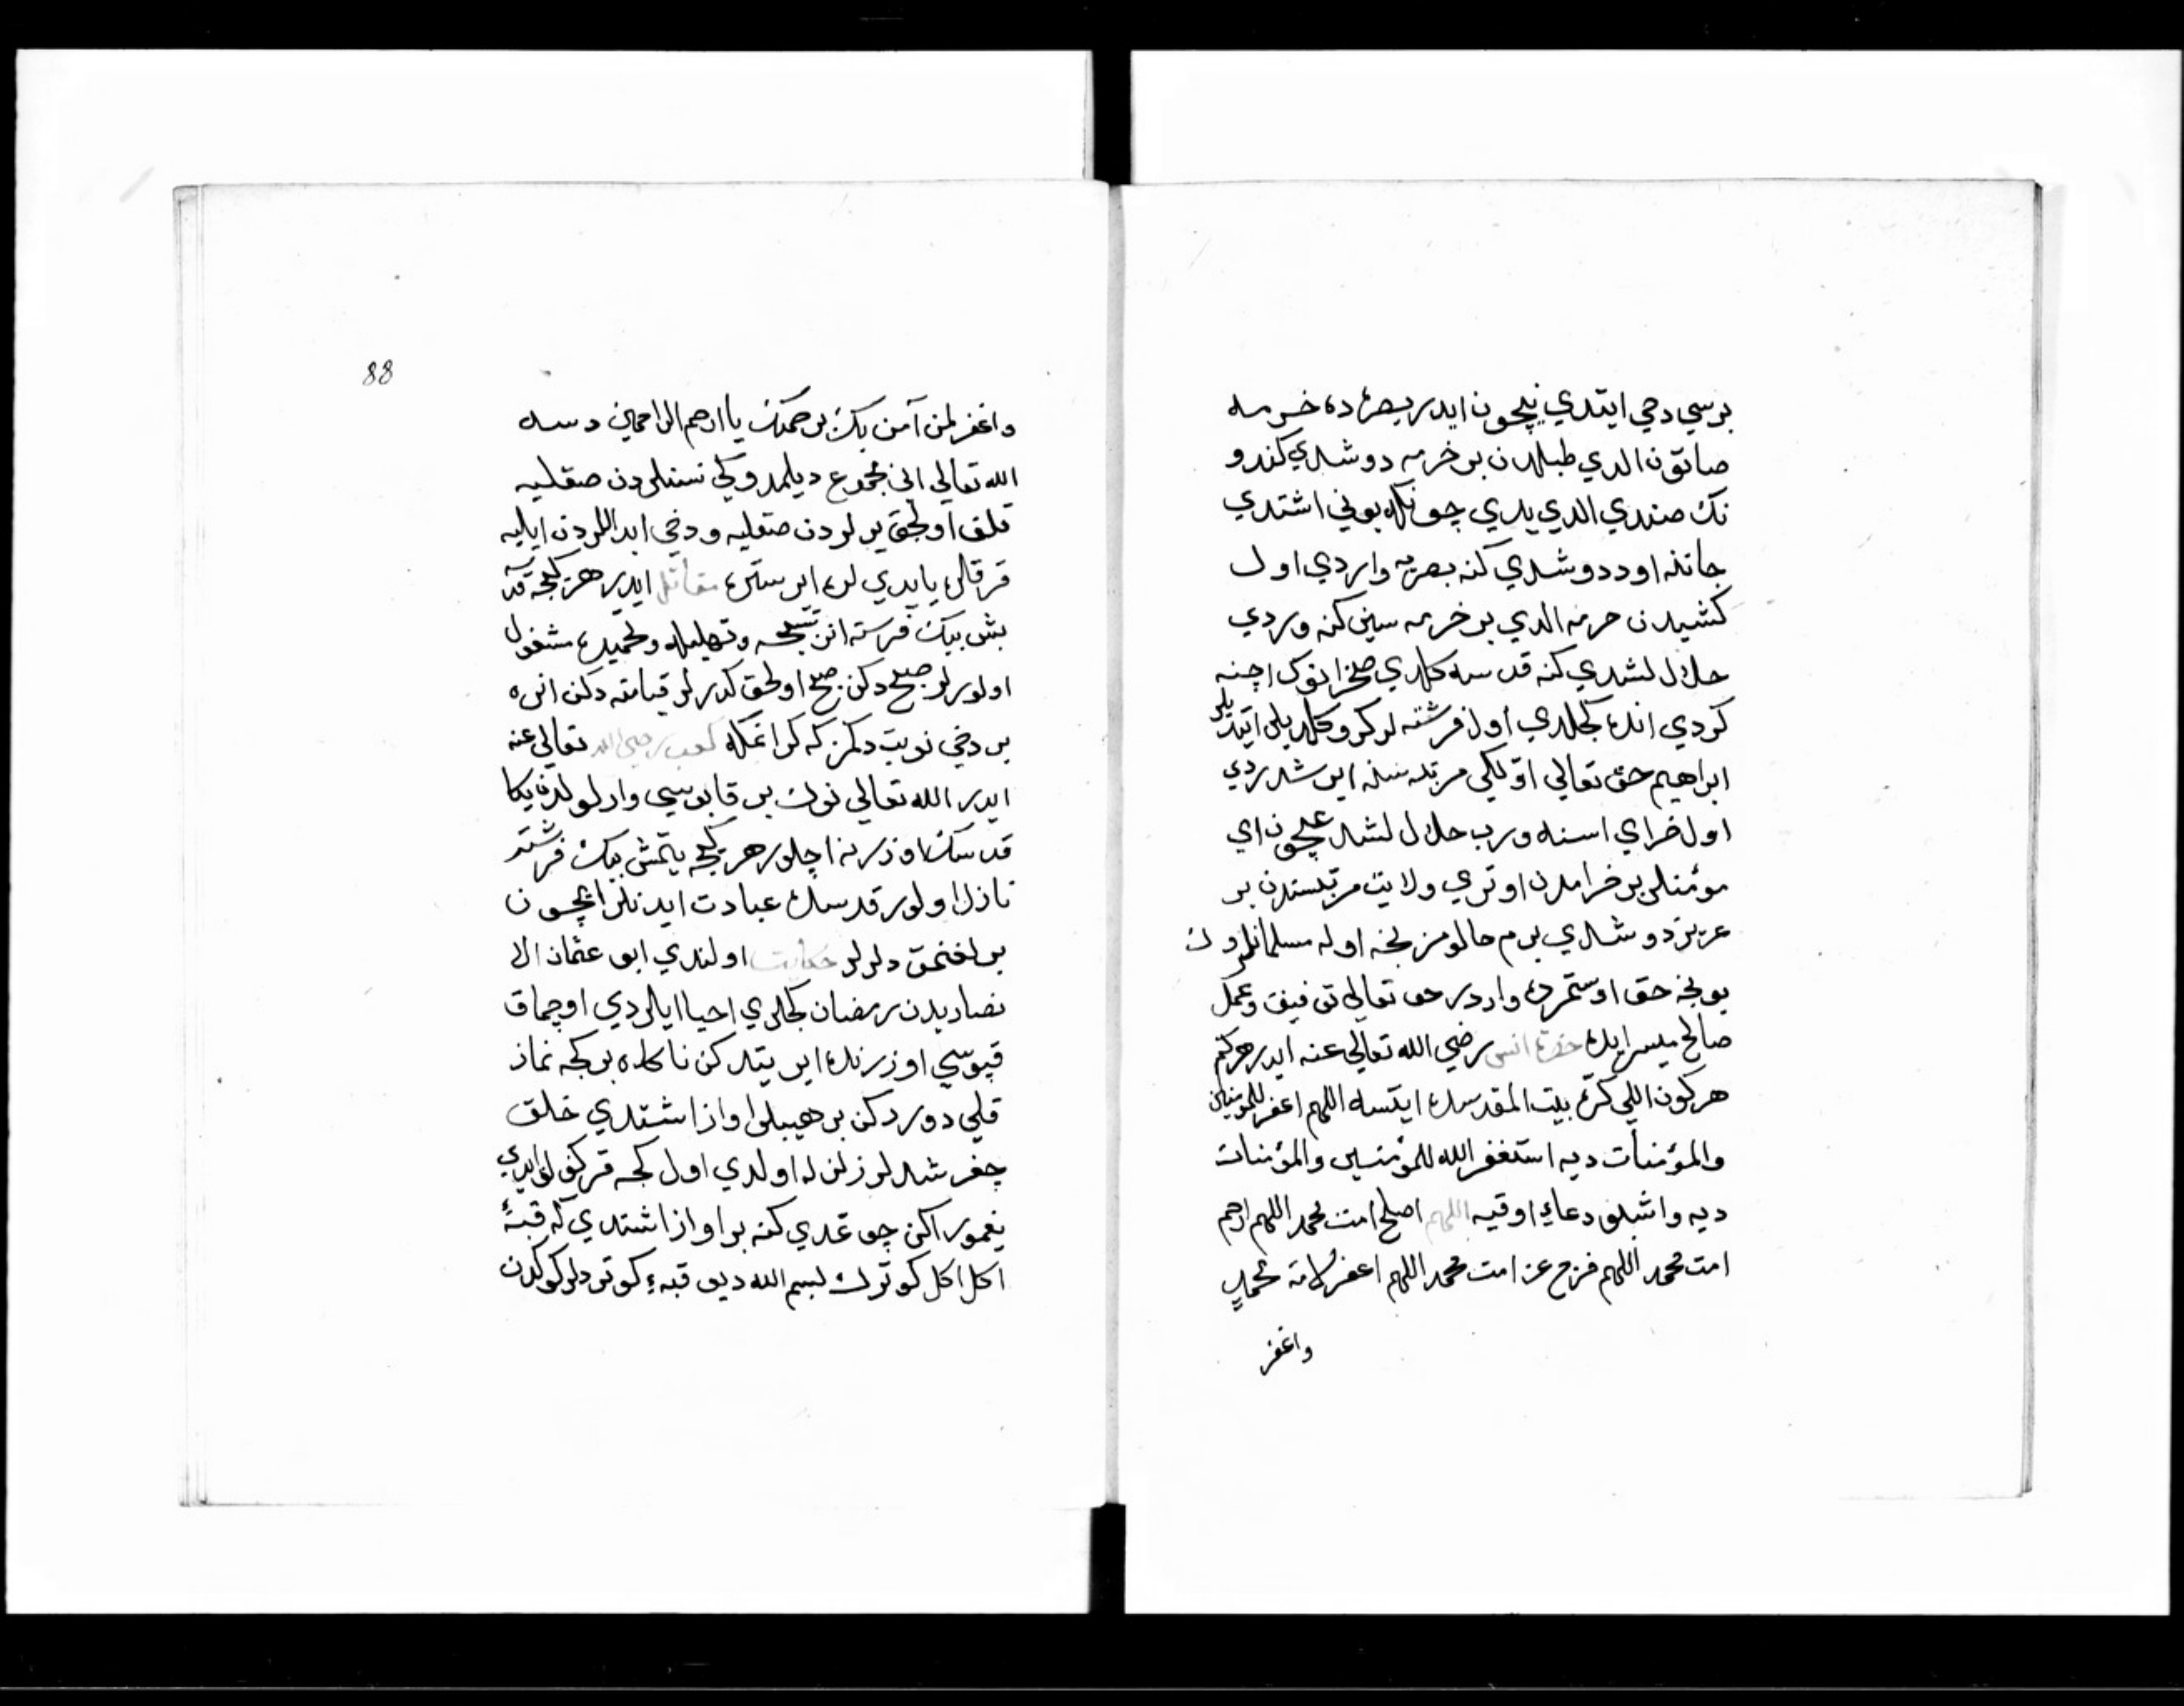 برسي دخي ايتدي نيچون ايدر بصره ده خرمه
صاتون الدي طبلدن بر خرمه دوشدي كندو
نك صندي الدي يدي چونكه بوني اشتدي
جاننه اود دوشدي كنه بصريه واردي اول
كشيدن خرمه الدي بر خرمه سين كنه وردي
حلال لشدي كنه قدسه كلدي صخرانوك اچنه
كردي انده كجلدي اول فرشته لر كرو كلديلر ايتديلر
ابراهيم حق تعالي اولكي مرتبه سنه ايرشدردي
اول خرماي اسنه ورب حلال لشدغيچون اي
مؤمنلر بر خرمادن اوتري ولايت مرتبسندن بر
عزيز دوشدي بزم حالومز نجه اوله مسلمانلروك
بونجه حق اوستمزده واردر حق تعالي توفيق وعمل
صالح ميسر ايده حضرة انس رضي الله تعالي عنه ايدر هركم
هر كون اللي كره بيت المقدسده ايتسه اللهم اغفر للمؤمنين
والمؤمنات ديه استغفر الله للمؤمنين والمؤمنات
ديه واشبلق دعاي اوقيه اللهم اصلح امت محمد اللهم ارحم
امت محمد اللهم فرج عن امت محمد اللهم اغفر لامة محمد
واغفر
88
واغفر لمن آمن بك برحمتك يا ارحم الراحمين دسه
الله تعالي اني مجموع ديلمدوكي نسنلردن صقليه
قلق اولجق يرلردن صقليه ودخي ابداللردن ايليه
قرقلر يا يديلره ايرستره مقاتل ايدر هر كيجه قدسه
بش بيك فرسته انر تسبيحه وتهليله وتحميده مشغول
اولورلر صبح دكن صبح اولجق كدرلر قيامته دكن انره
بر دخي نوبت دكمز كه كرا نمكله كعب رضي الله تعالي عنه
ايدر الله تعالي نوك بر قاپوسي واردر
قدسك اوزرنه اچلور هر كيجه يتمش بيك فرشته
نازل اولور قدسده عبادت ايدنلر ايچون
يرلغنمق دلرلر حكايت اولندي ابو عثمان الا
نصاريدن رمضان كجلري احيا ايلردي اوچماق
قپوسي اوزرنده ايريتدكن ناكاه بر كجه نماز
قلي دوردكن بر هيبلو اواز اشتدي خلق
چغرشدلر زلزله اولدي اول كجه قركولق ايدي
يغمور اكن چوغدي كنه بر اواز اشتدي كه قبه
اكل اكل كوترك بسم الله ديو قبه كوتردلر كوكدن